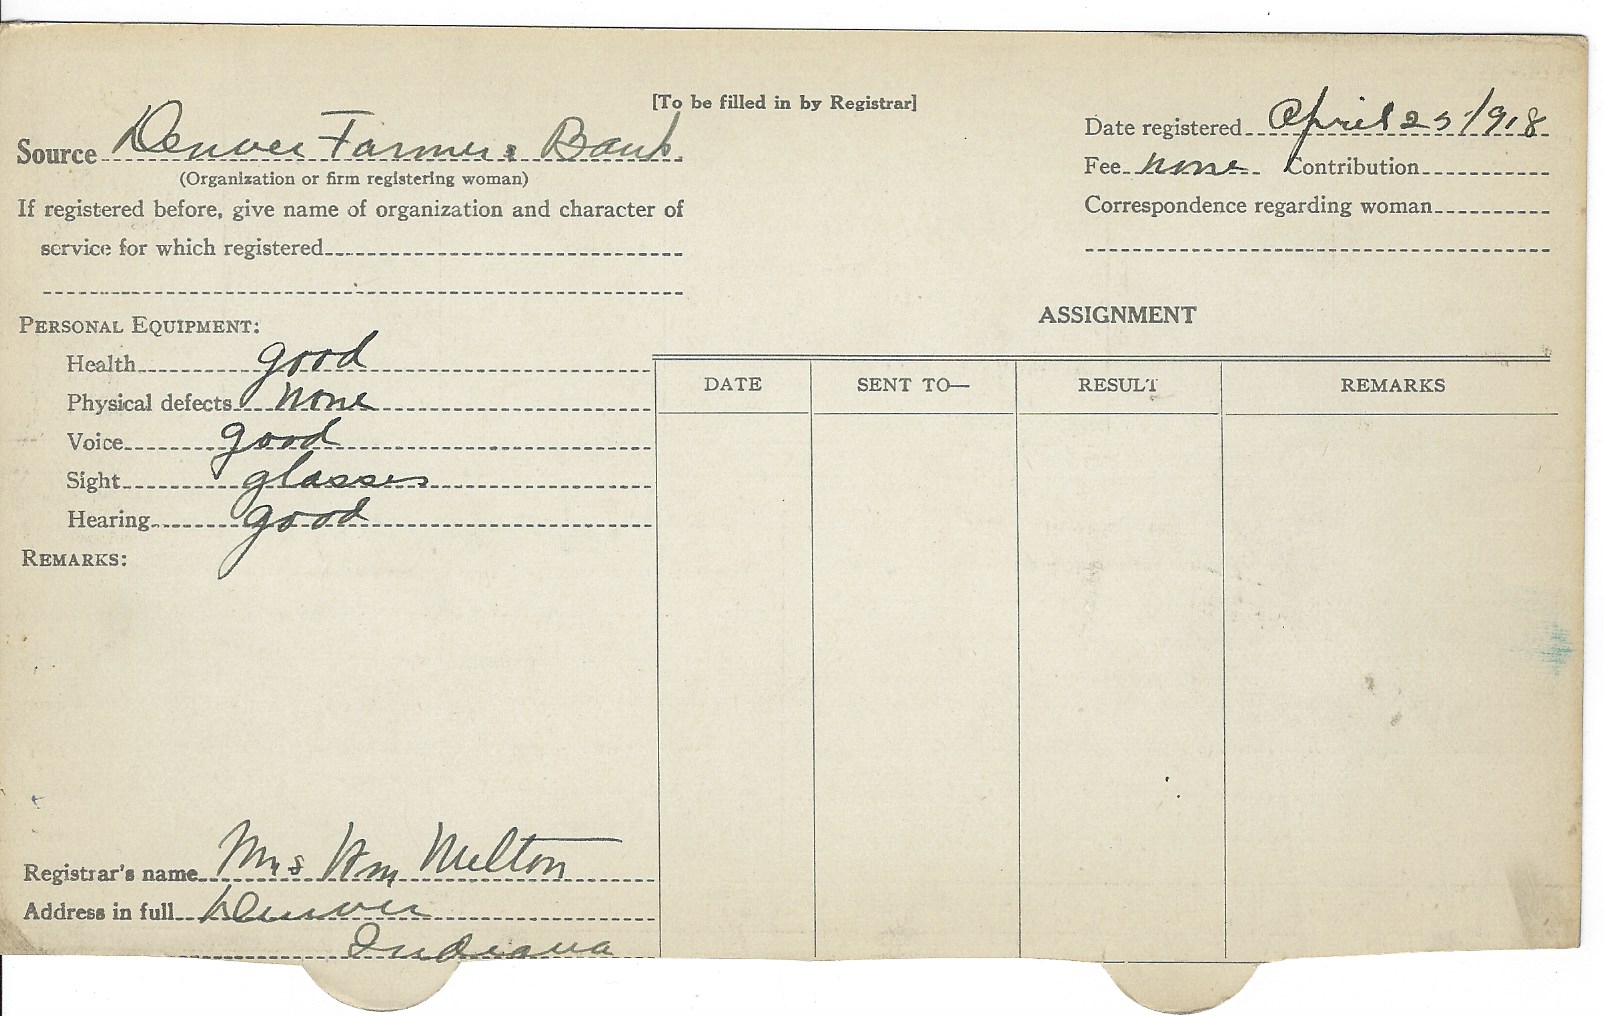 [To be filled in by Registrar]
Source Denver Farmers Bank
(Organization or firm registering woman)
If registered before, give name of organization and character of
service for which registered
Date registered April 25 1918
Fee none Contribution
Correspondence regarding woman
PERSONAL EQUIPMENT:
Health good
Physical defects none
Voice good
Sight glasses
Hearing good
REMARKS:
ASSIGNMENT
DATE SENT TO— RESULT REMARKS
Registrar's name Mrs Wm Melton
Address in full Denver
Indiana